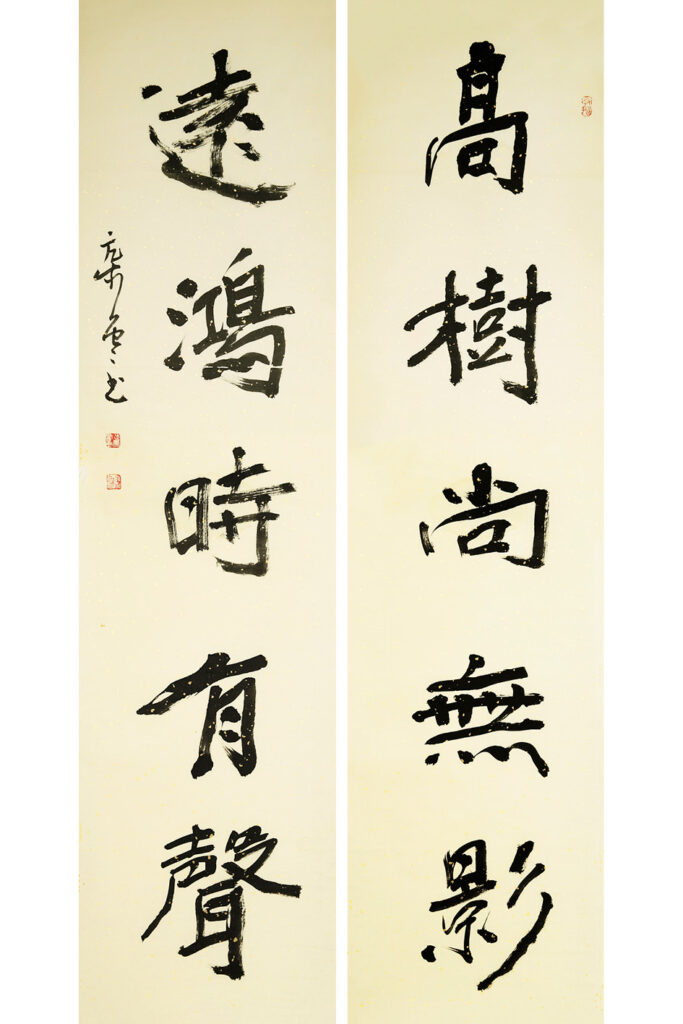 高樹尚無影
遠鴻時有聲